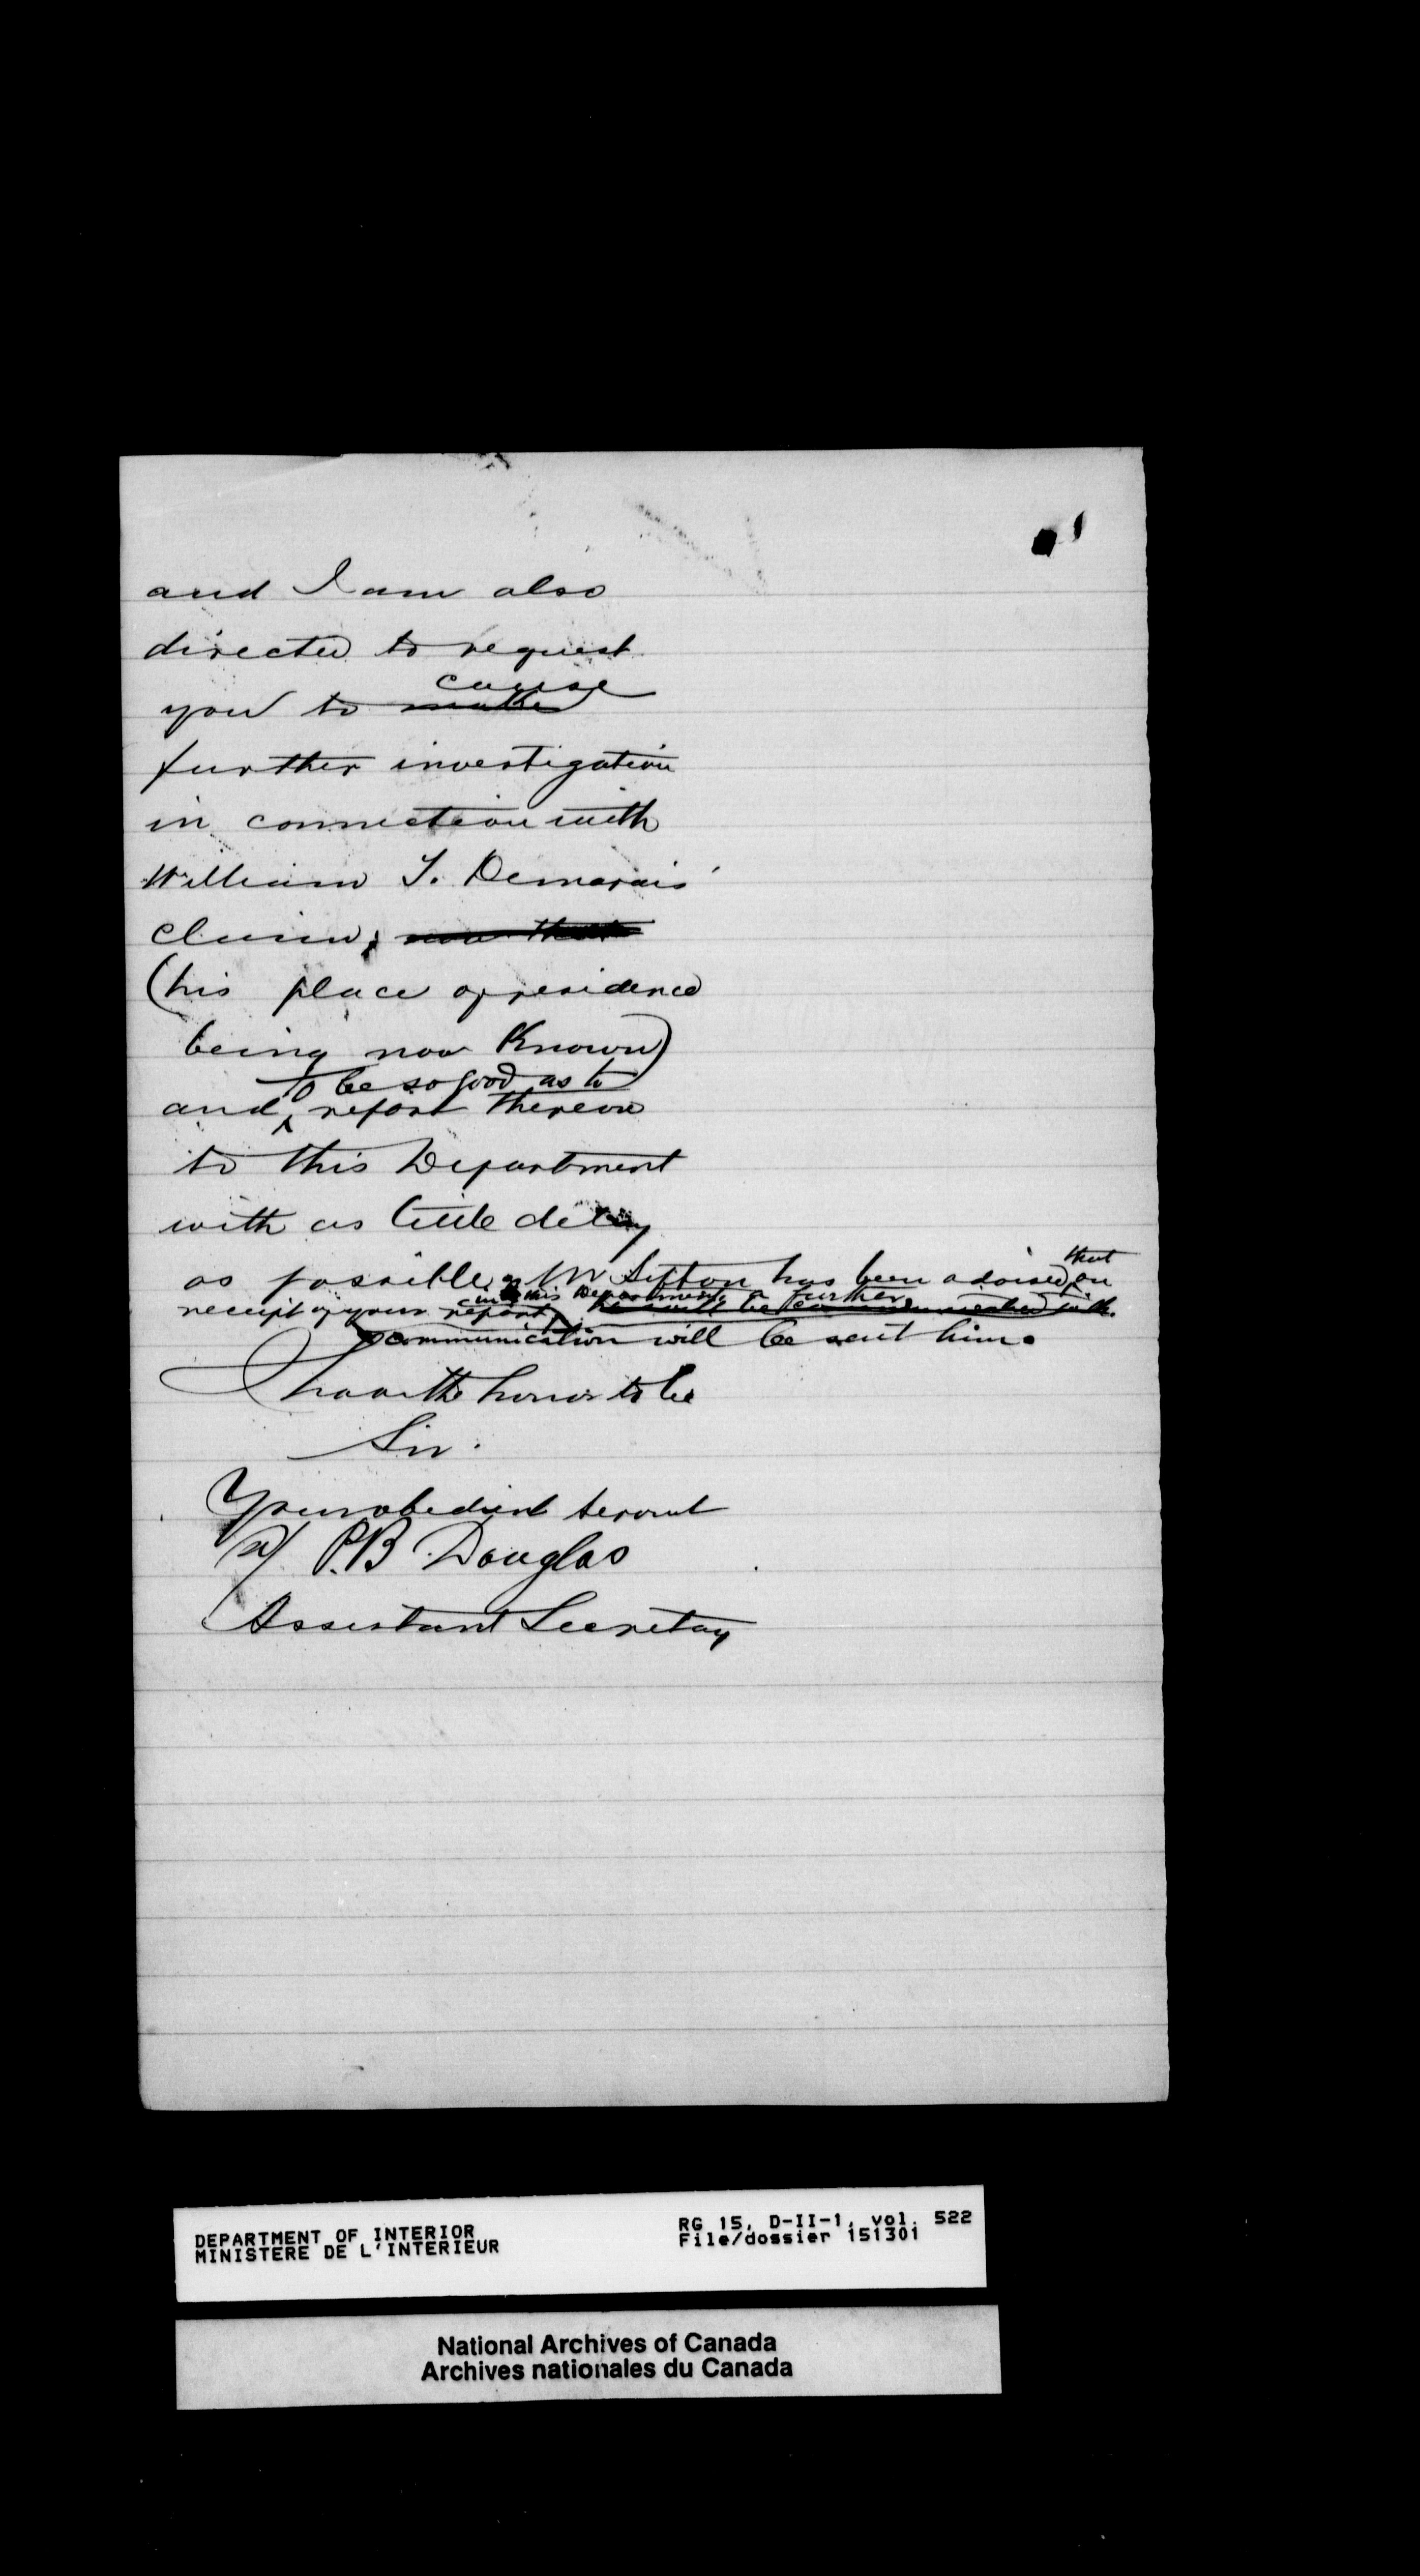 and I am also
directed to request
cause
you to make
further investigation
in connection with
William T. Demarais'
claim, now that
(his place of residence
being now known)
to be so good as to
and report thereon
to this Department
with as little delay
that
as possible. Mr Sifton has been advised on
in this Department, a further
receipt of your report, he will be communicated with.
communication will be sent him.
I have the honor to be
Sir.
Your obedient servant
P.B. Douglas
Assistant Secretary
DEPARTMENT OF INTERIOR
MINISTERE DE L'INTERIEUR
RG 15, D-II-1, vol. 522
File/dossier 151301
National Archives of Canada
Archives nationales du Canada